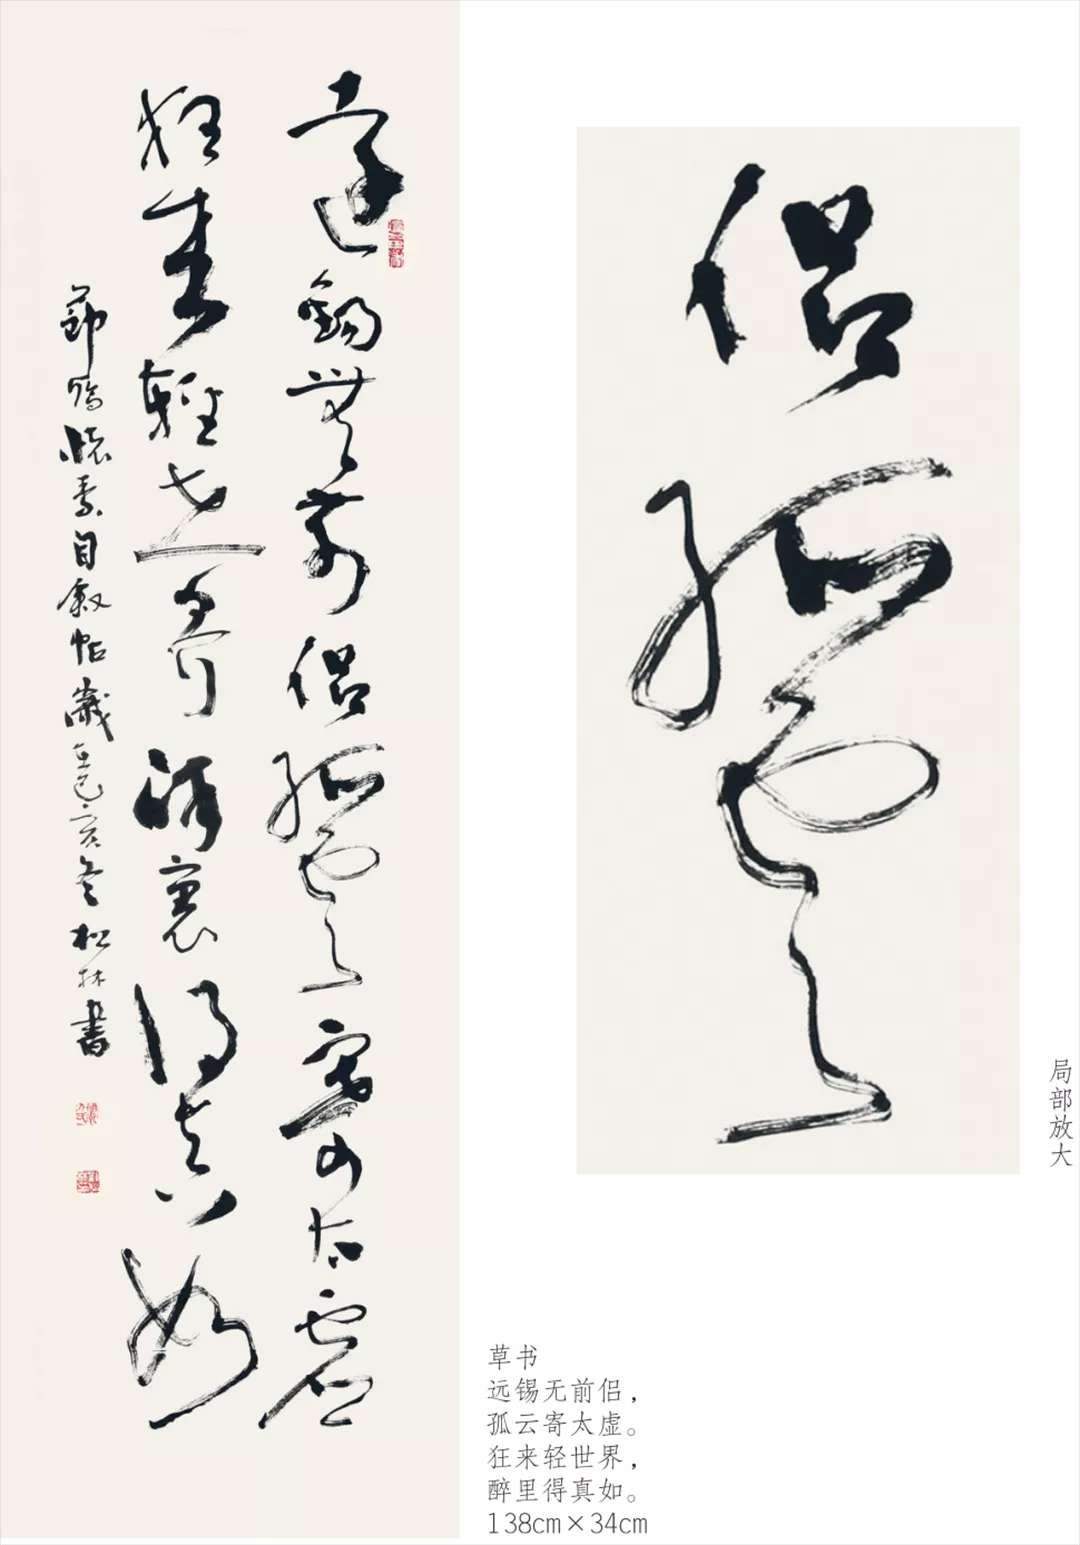 遠錫無前侶孤雲寄太虛
狂来輕世界醉裏得真如
節臨懷素自叙帖歲在己亥冬松林書
侶孤雲
局部放大
草书
远锡无前侣，
孤云寄太虚。
狂来轻世界，
醉里得真如。
138cm×34cm